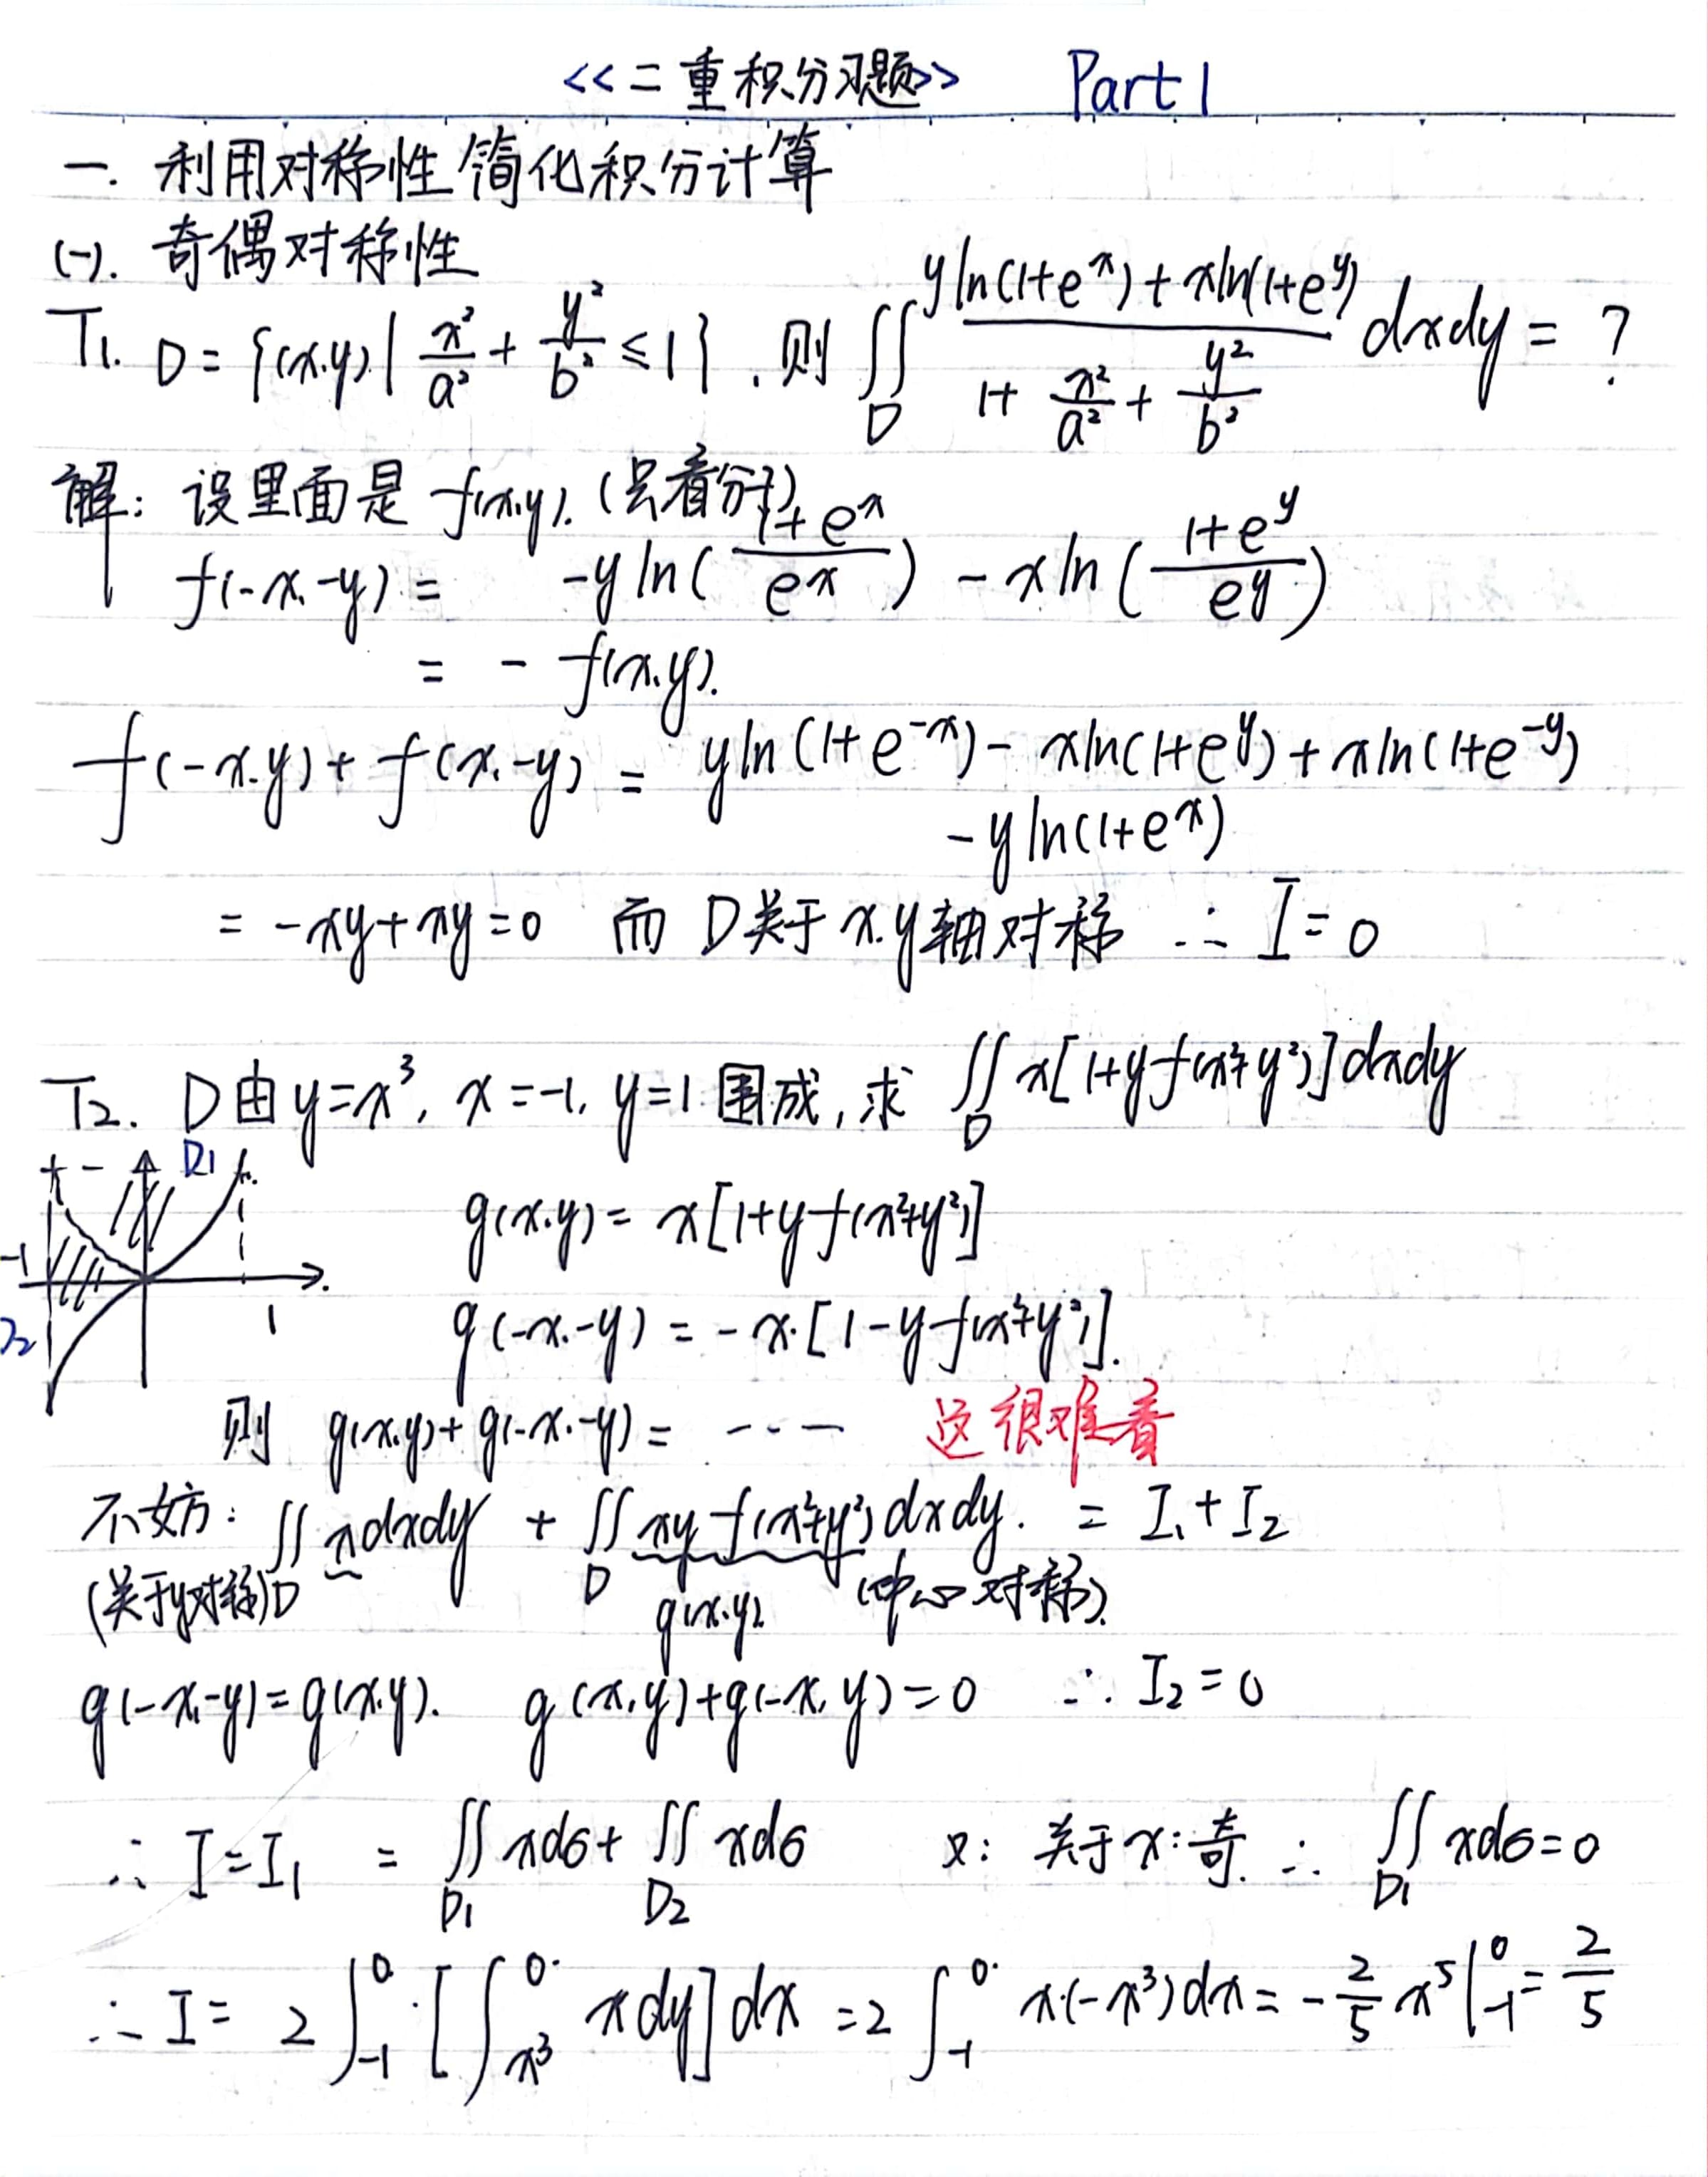 <<二重积分习题>> Part1
一. 利用对称性简化积分计算
(一). 奇偶对称性
T1. D = {(x,y) | x²/a² + y²/b² ≤ 1}. 则 ∬_D [yln(1+e^x) + xln(1+e^y)] / [1 + x²/a² + y²/b²] dxdy = ?
解: 设里面是 f(x,y). (只看分子)
f(-x,-y) = -yln((1+e^x)/e^x) - xln((1+e^y)/e^y)
= - f(x,y).
f(-x,y) + f(x,-y) = yln(1+e^-x) - xln(1+e^y) + xln(1+e^-y)
- yln(1+e^x)
= -xy+xy=0 而 D关于x.y轴对称 ∴ I=0
T2. D由 y=x³, x=-1, y=1 围成, 求 ∬_D x[1+yf(x²+y²)]dxdy
+ - D1
g(x,y) = x[1+yf(x²+y²)]
-1
1
g(-x,-y) = -x·[1-yf(x²+y²)].
则 g(x,y)+g(-x,-y) = ---- 这很难看
不妨: ∬_D xdxdy + ∬_D xyf(x²+y²)dxdy. = I₁+I₂
(关于y对称) g(x,y) (中心对称).
g(-x,-y)=g(x,y). g(x,y)+g(-x,y)=0 ∴ I₂=0
∴ I=I₁ = ∬_D1 xdσ + ∬_D2 xdσ 又: 关于x:奇. ∴ ∬_D1 xdσ=0
∴ I = 2∫_-1^0 [∫_x³^0 xdy]dx = 2∫_-1^0 x·(-x³)dx = -2/5 x⁵|_-1^0 = 2/5